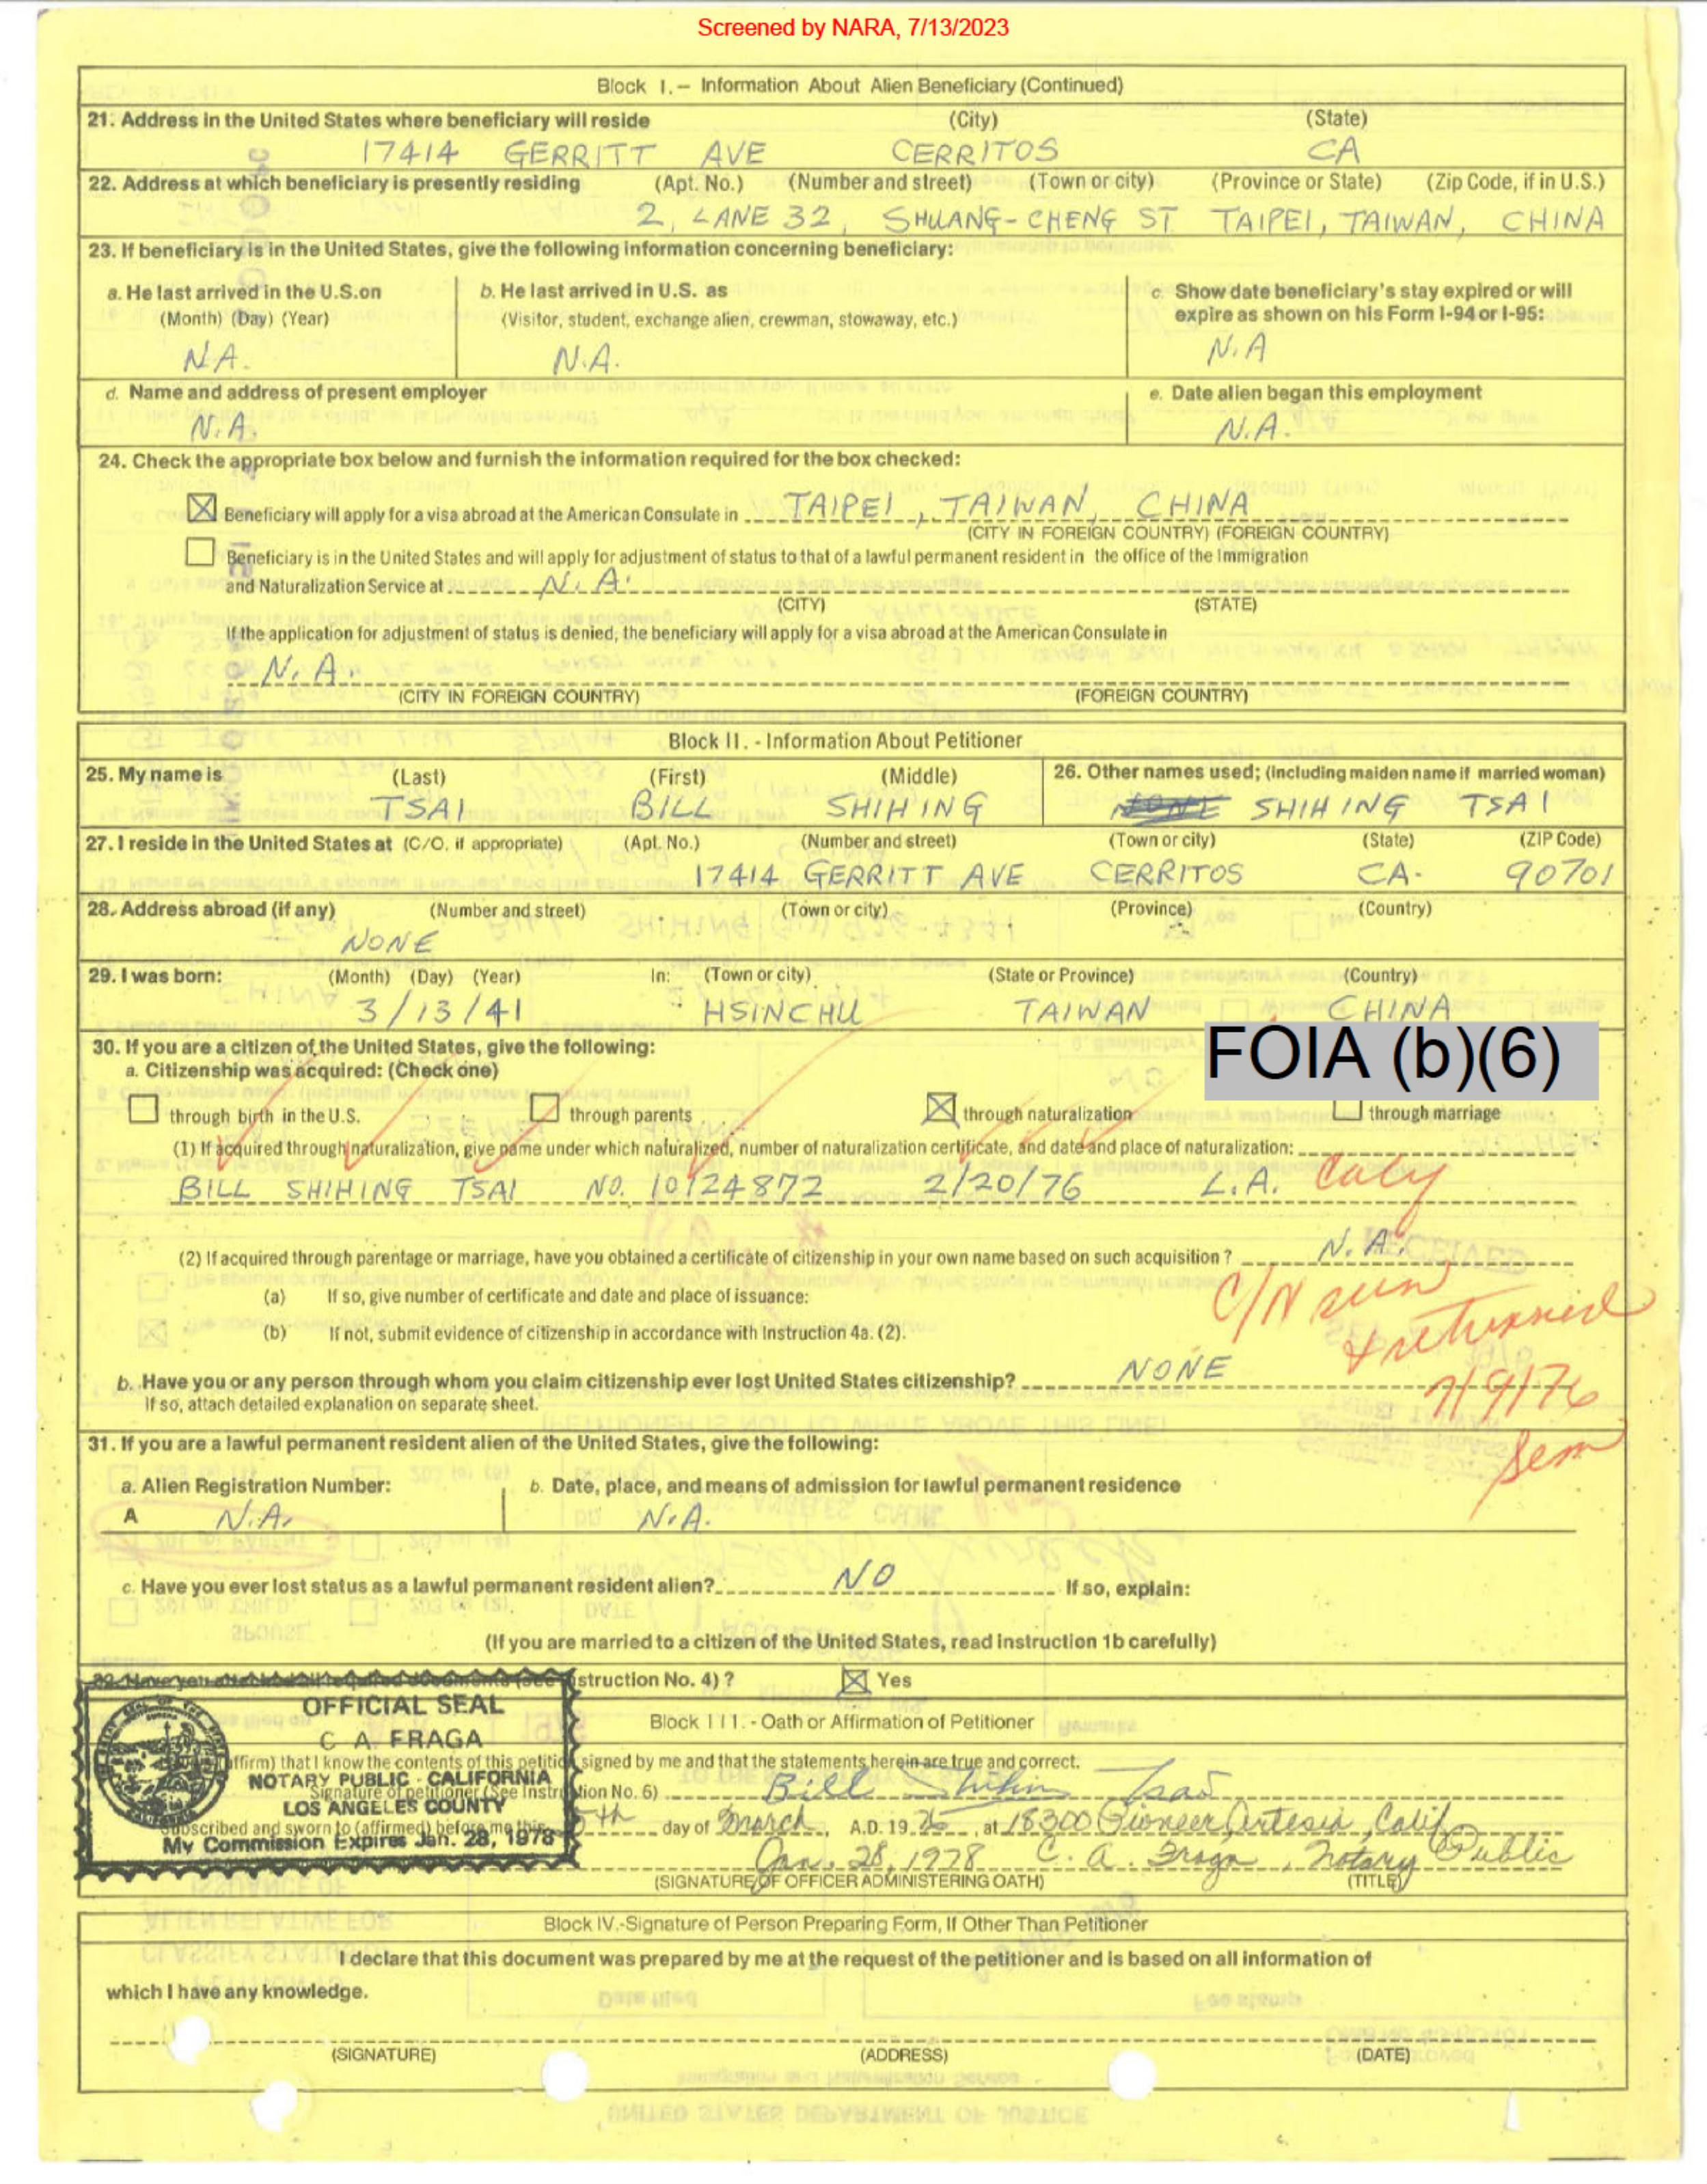 Screened by NARA, 7/13/2023
Block I.— Information About Alien Beneficiary (Continued)
21. Address in the United States where beneficiary will reside (City) (State)
17414 GERRITT AVE CERRITOS CA
22. Address at which beneficiary is presently residing (Apt. No.) (Number and street) (Town or city) (Province or State) (Zip Code, if in U.S.)
2, LANE 32, SHUANG-CHENG ST TAIPEI, TAIWAN, CHINA
23. If beneficiary is in the United States, give the following information concerning beneficiary:
a. He last arrived in the U.S. on b. He last arrived in U.S. as c. Show date beneficiary's stay expired or will
(Month) (Day) (Year) (Visitor, student, exchange alien, crewman, stowaway, etc.) expire as shown on his Form I-94 or I-95:
N.A. N.A. N.A
d. Name and address of present employer e. Date alien began this employment
N.A. N.A.
24. Check the appropriate box below and furnish the information required for the box checked:
Beneficiary will apply for a visa abroad at the American Consulate in TAIPEI, TAIWAN, CHINA
(CITY IN FOREIGN COUNTRY) (FOREIGN COUNTRY)
Beneficiary is in the United States and will apply for adjustment of status to that of a lawful permanent resident in the office of the Immigration
and Naturalization Service at N.A.
(CITY) (STATE)
If the application for adjustment of status is denied, the beneficiary will apply for a visa abroad at the American Consulate in
N.A.
(CITY IN FOREIGN COUNTRY) (FOREIGN COUNTRY)
Block II. - Information About Petitioner
25. My name is (Last) (First) (Middle) 26. Other names used; (including maiden name if married woman)
TSAI BILL SHIHING NONE SHIHING TSAI
27. I reside in the United States at (C/O, if appropriate) (Apt. No.) (Number and street) (Town or city) (State) (ZIP Code)
17414 GERRITT AVE CERRITOS CA. 90701
28. Address abroad (if any) (Number and street) (Town or city) (Province) (Country)
NONE
29. I was born: (Month) (Day) (Year) In: (Town or city) (State or Province) (Country)
3/13/41 HSINCHU TAIWAN CHINA
FOIA (b)(6)
30. If you are a citizen of the United States, give the following:
a. Citizenship was acquired: (Check one)
through birth in the U.S. through parents through naturalization through marriage
(1) If acquired through naturalization, give name under which naturalized, number of naturalization certificate, and date and place of naturalization:
BILL SHIHING TSAI NO. 10124872 2/20/76 L.A.
(2) If acquired through parentage or marriage, have you obtained a certificate of citizenship in your own name based on such acquisition? N.A.
(a) If so, give number of certificate and date and place of issuance:
C/N seen
(b) If not, submit evidence of citizenship in accordance with Instruction 4a. (2).
& returned
b. Have you or any person through whom you claim citizenship ever lost United States citizenship? NONE
7/9/76
If so, attach detailed explanation on separate sheet.
31. If you are a lawful permanent resident alien of the United States, give the following:
a. Alien Registration Number: b. Date, place, and means of admission for lawful permanent residence
A N.A. N.A.
c. Have you ever lost status as a lawful permanent resident alien? NO If so, explain:
(If you are married to a citizen of the United States, read instruction 1b carefully)
32. Have you attached all required documents (see Instruction No. 4)? Yes
OFFICIAL SEAL
C A FRAGA
NOTARY PUBLIC - CALIFORNIA
LOS ANGELES COUNTY
My Commission Expires Jan. 28, 1978
Block III. - Oath or Affirmation of Petitioner
affirm) that I know the contents of this petition signed by me and that the statements herein are true and correct.
Signature of petitioner (See Instruction No. 6) Bill Shihing Tsai
Subscribed and sworn to (affirmed) before me this day of March, A.D. 19 76, at 18300 Pioneer, Artesia, Calif.
Jan. 28, 1978 C. A. Fraga, Notary Public
(SIGNATURE OF OFFICER ADMINISTERING OATH) (TITLE)
Block IV.-Signature of Person Preparing Form, If Other Than Petitioner
I declare that this document was prepared by me at the request of the petitioner and is based on all information of
which I have any knowledge.
(SIGNATURE) (ADDRESS) (DATE)